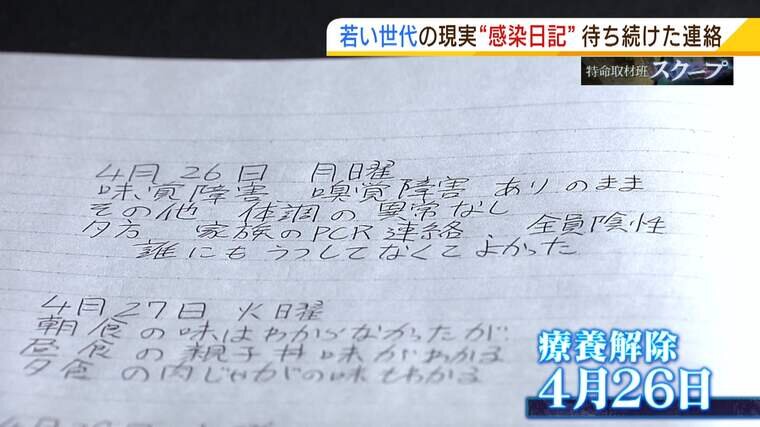 若い世代の現実“感染日記” 待ち続けた連絡
特命取材班 スクープ
4月26日 月曜
味覚障害 嗅覚障害 ありのまま
その他 体調の異常なし
夕方 家族のPCR連絡、全員陰性
誰にもうつしてなくてよかった
4月27日 火曜
朝食の味はわからなかったが
昼食の親子丼味がわかる
夕食の肉じゃがの味もわかる
療養解除
4月26日